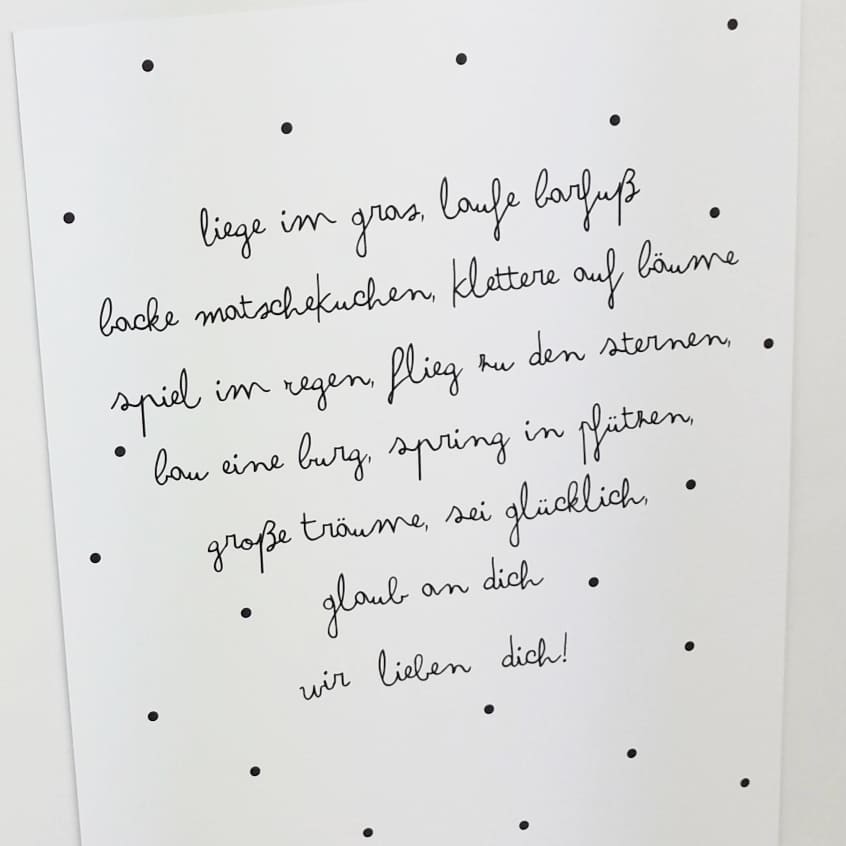 liege im gras, laufe barfuß
backe matschekuchen, klettere auf bäume
spiel im regen, flieg zu den sternen,
bau eine burg, spring in pfützen,
große träume, sei glücklich,
glaub an dich
wir lieben dich!